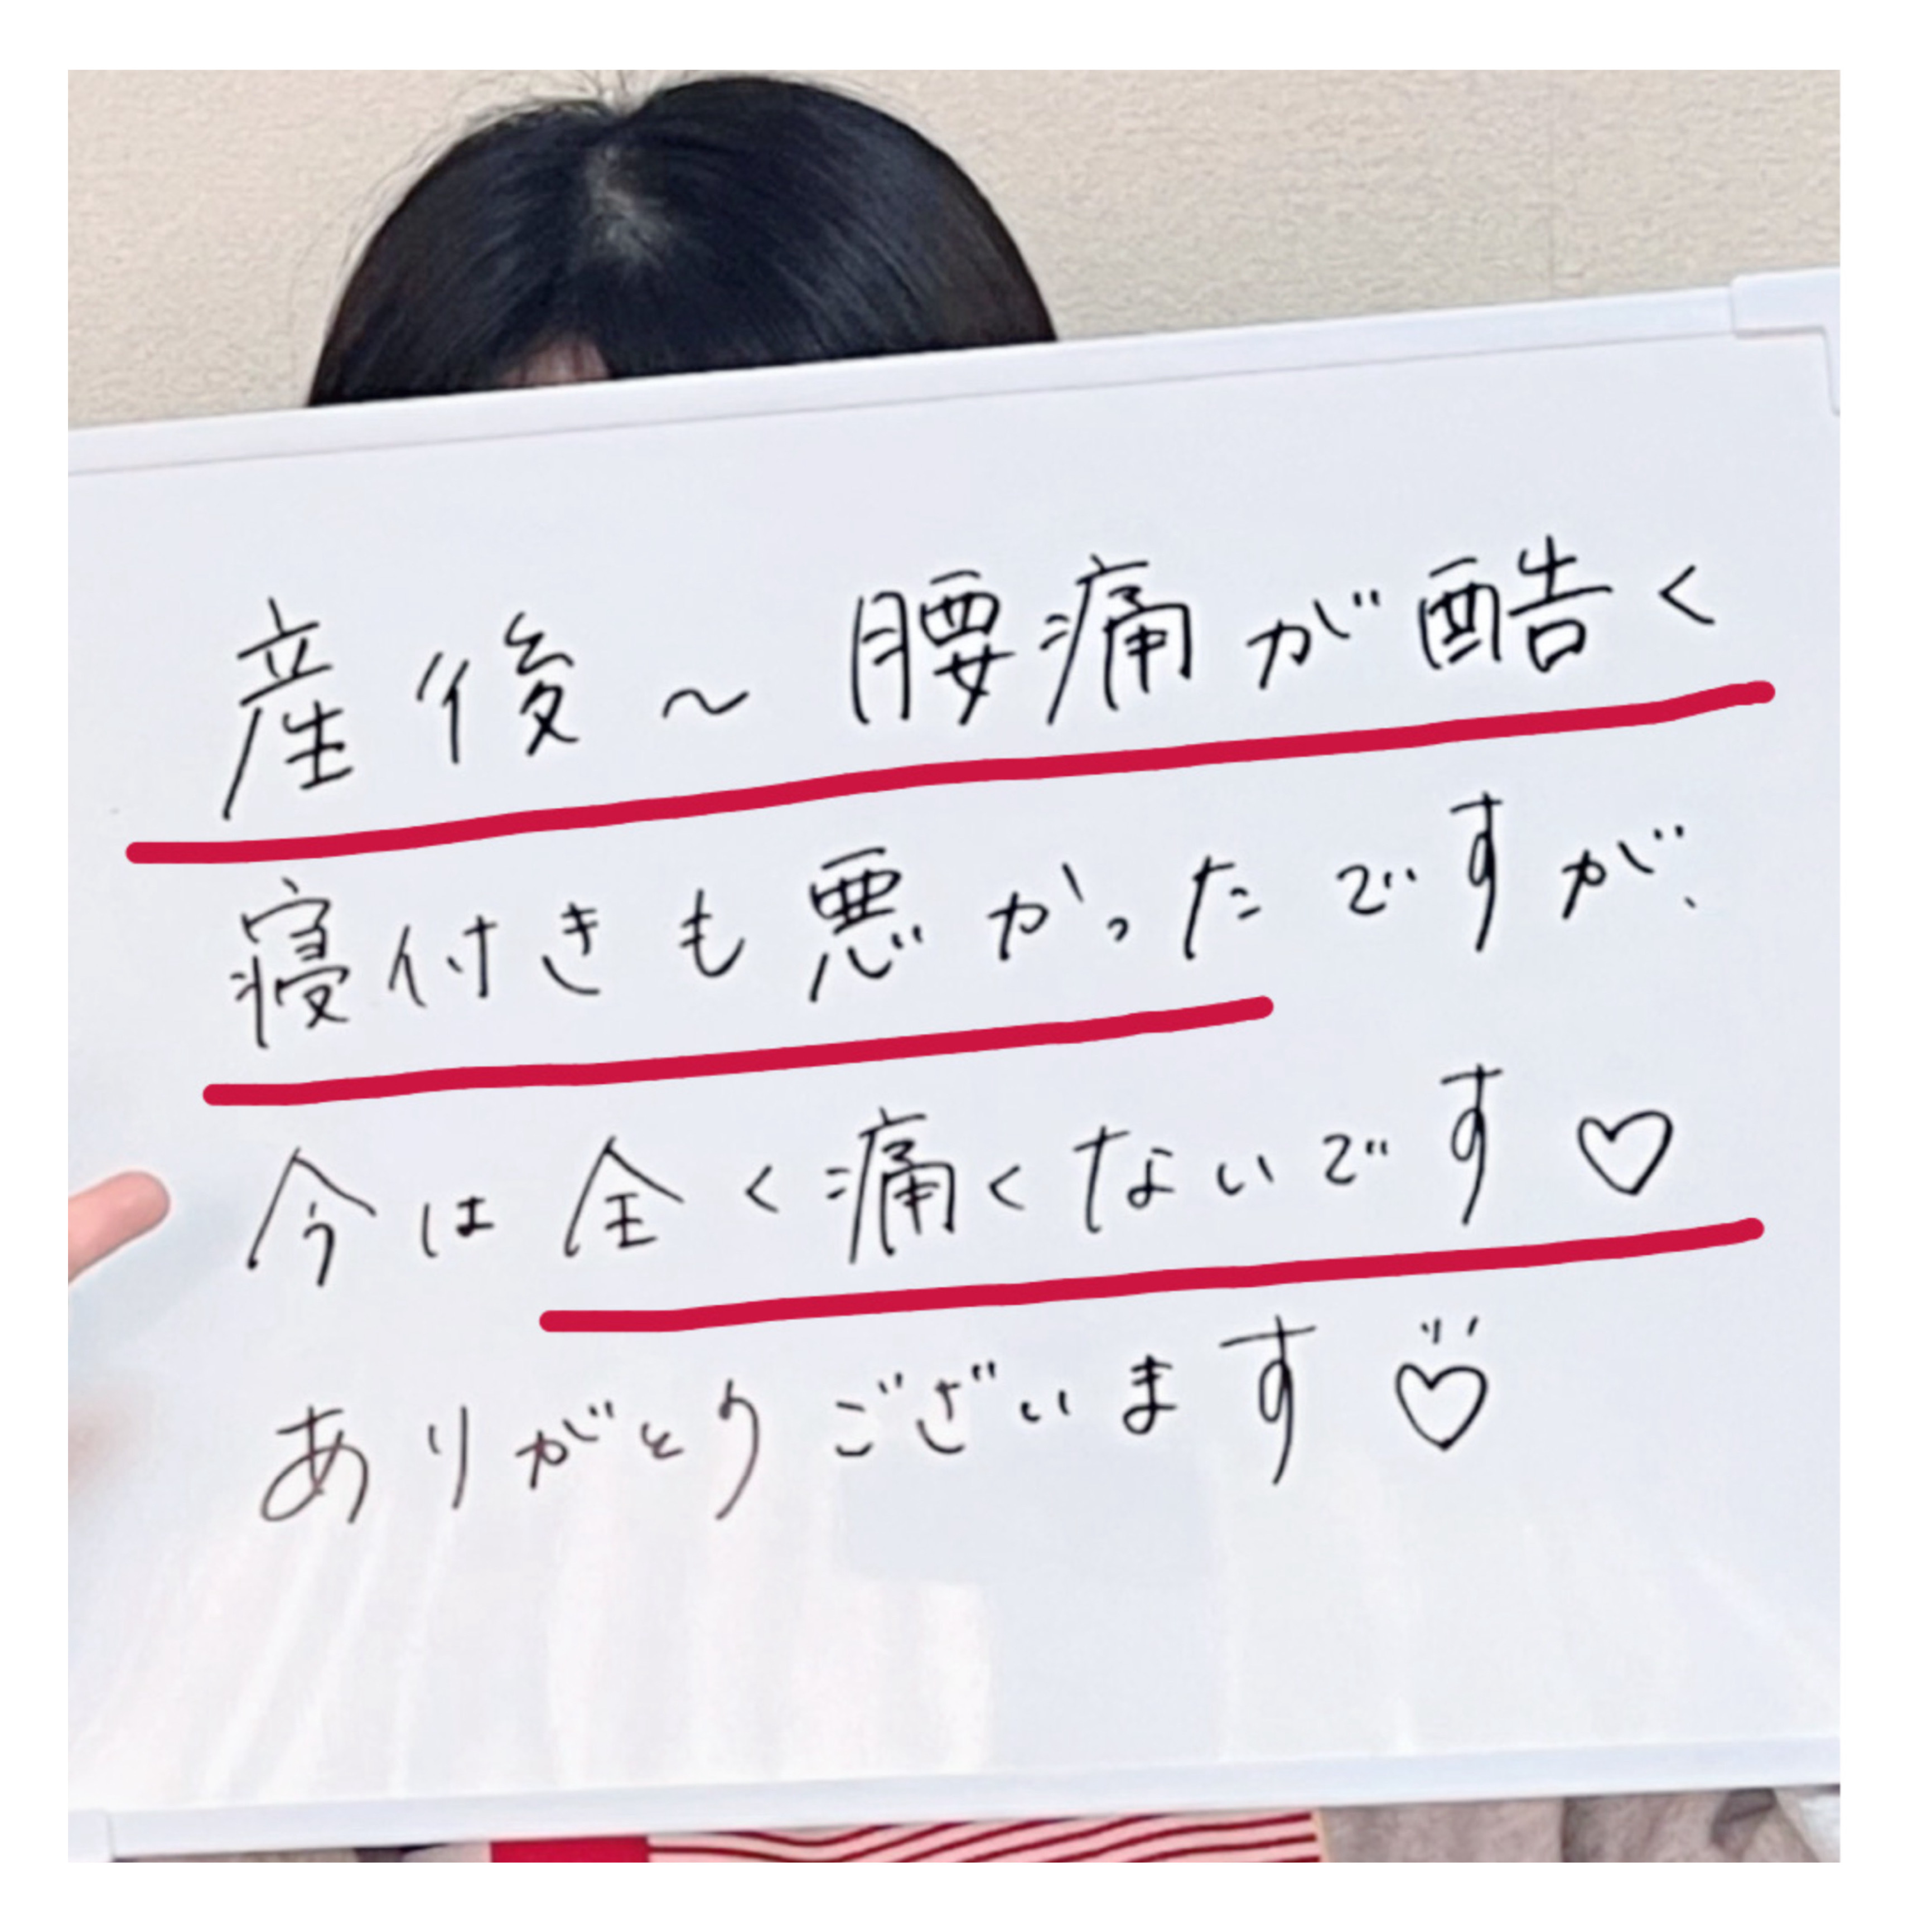 産後～腰痛が酷く
寝付きも悪かったですが、
今は全く痛くないです♡
ありがとうございます♡